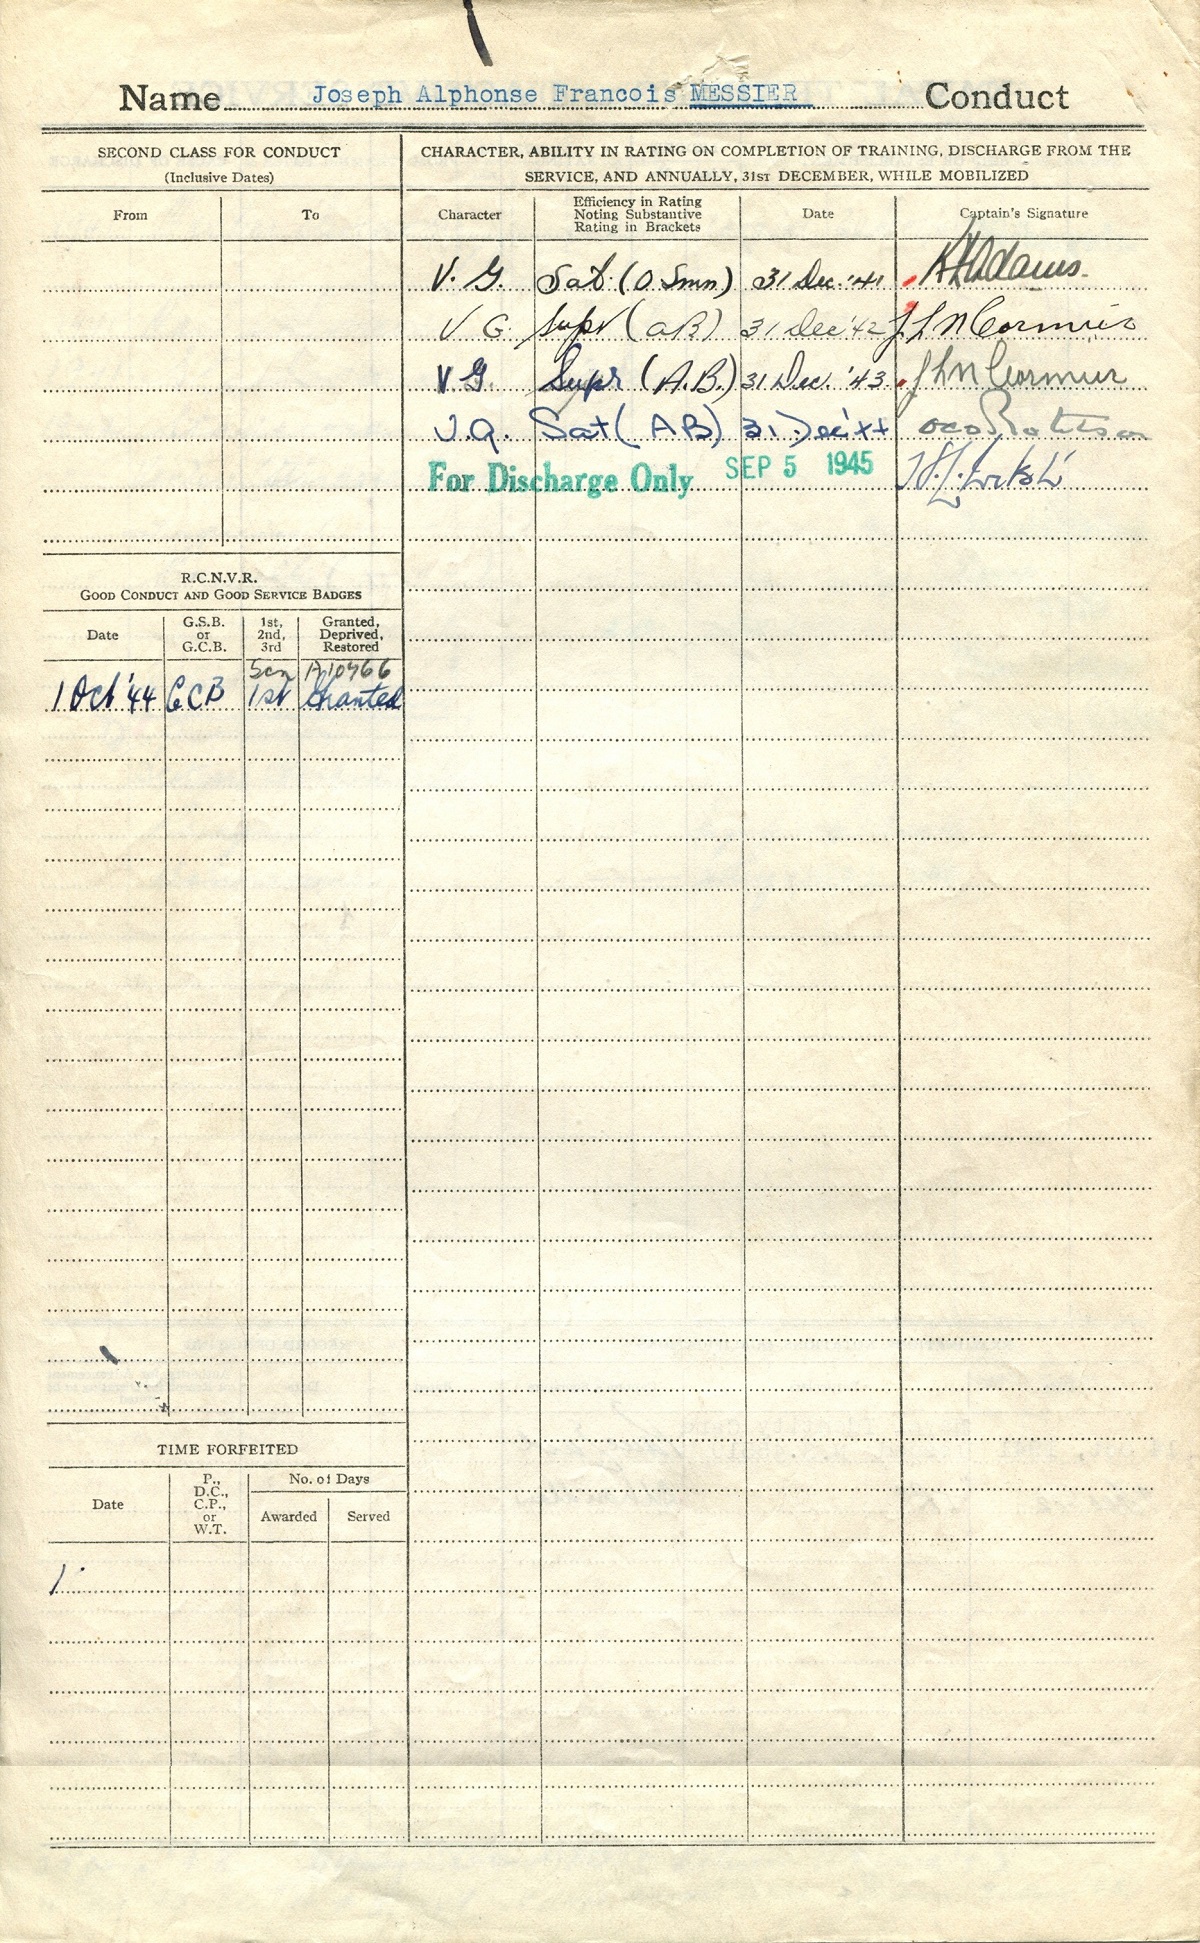 Name Joseph Alphonse Francois MESSIER Conduct
SECOND CLASS FOR CONDUCT
(Inclusive Dates)
From To
CHARACTER, ABILITY IN RATING ON COMPLETION OF TRAINING, DISCHARGE FROM THE
SERVICE, AND ANNUALLY, 31ST DECEMBER, WHILE MOBILIZED
Character
Efficiency in Rating
Noting Substantive
Rating in Brackets
Date
Captain's Signature
V. G. Sat. (O. Smn) 31 Dec. '41 Adams.
V G. Supr (AB) 31 Dec '42 Cormier
V G. Supr (A.B.) 31 Dec. '43 Cormier
V.G. Sat (AB) 31 Dec '44
For Discharge Only SEP 5 1945
R.C.N.V.R.
GOOD CONDUCT AND GOOD SERVICE BADGES
Date
G.S.B.
or
G.C.B.
1st,
2nd,
3rd
Granted,
Deprived,
Restored
A10766
1 Oct '44 GCB 1st Granted
TIME FORFEITED
Date
P.,
D.C.,
C.P.,
or
W.T.
No. of Days
Awarded Served